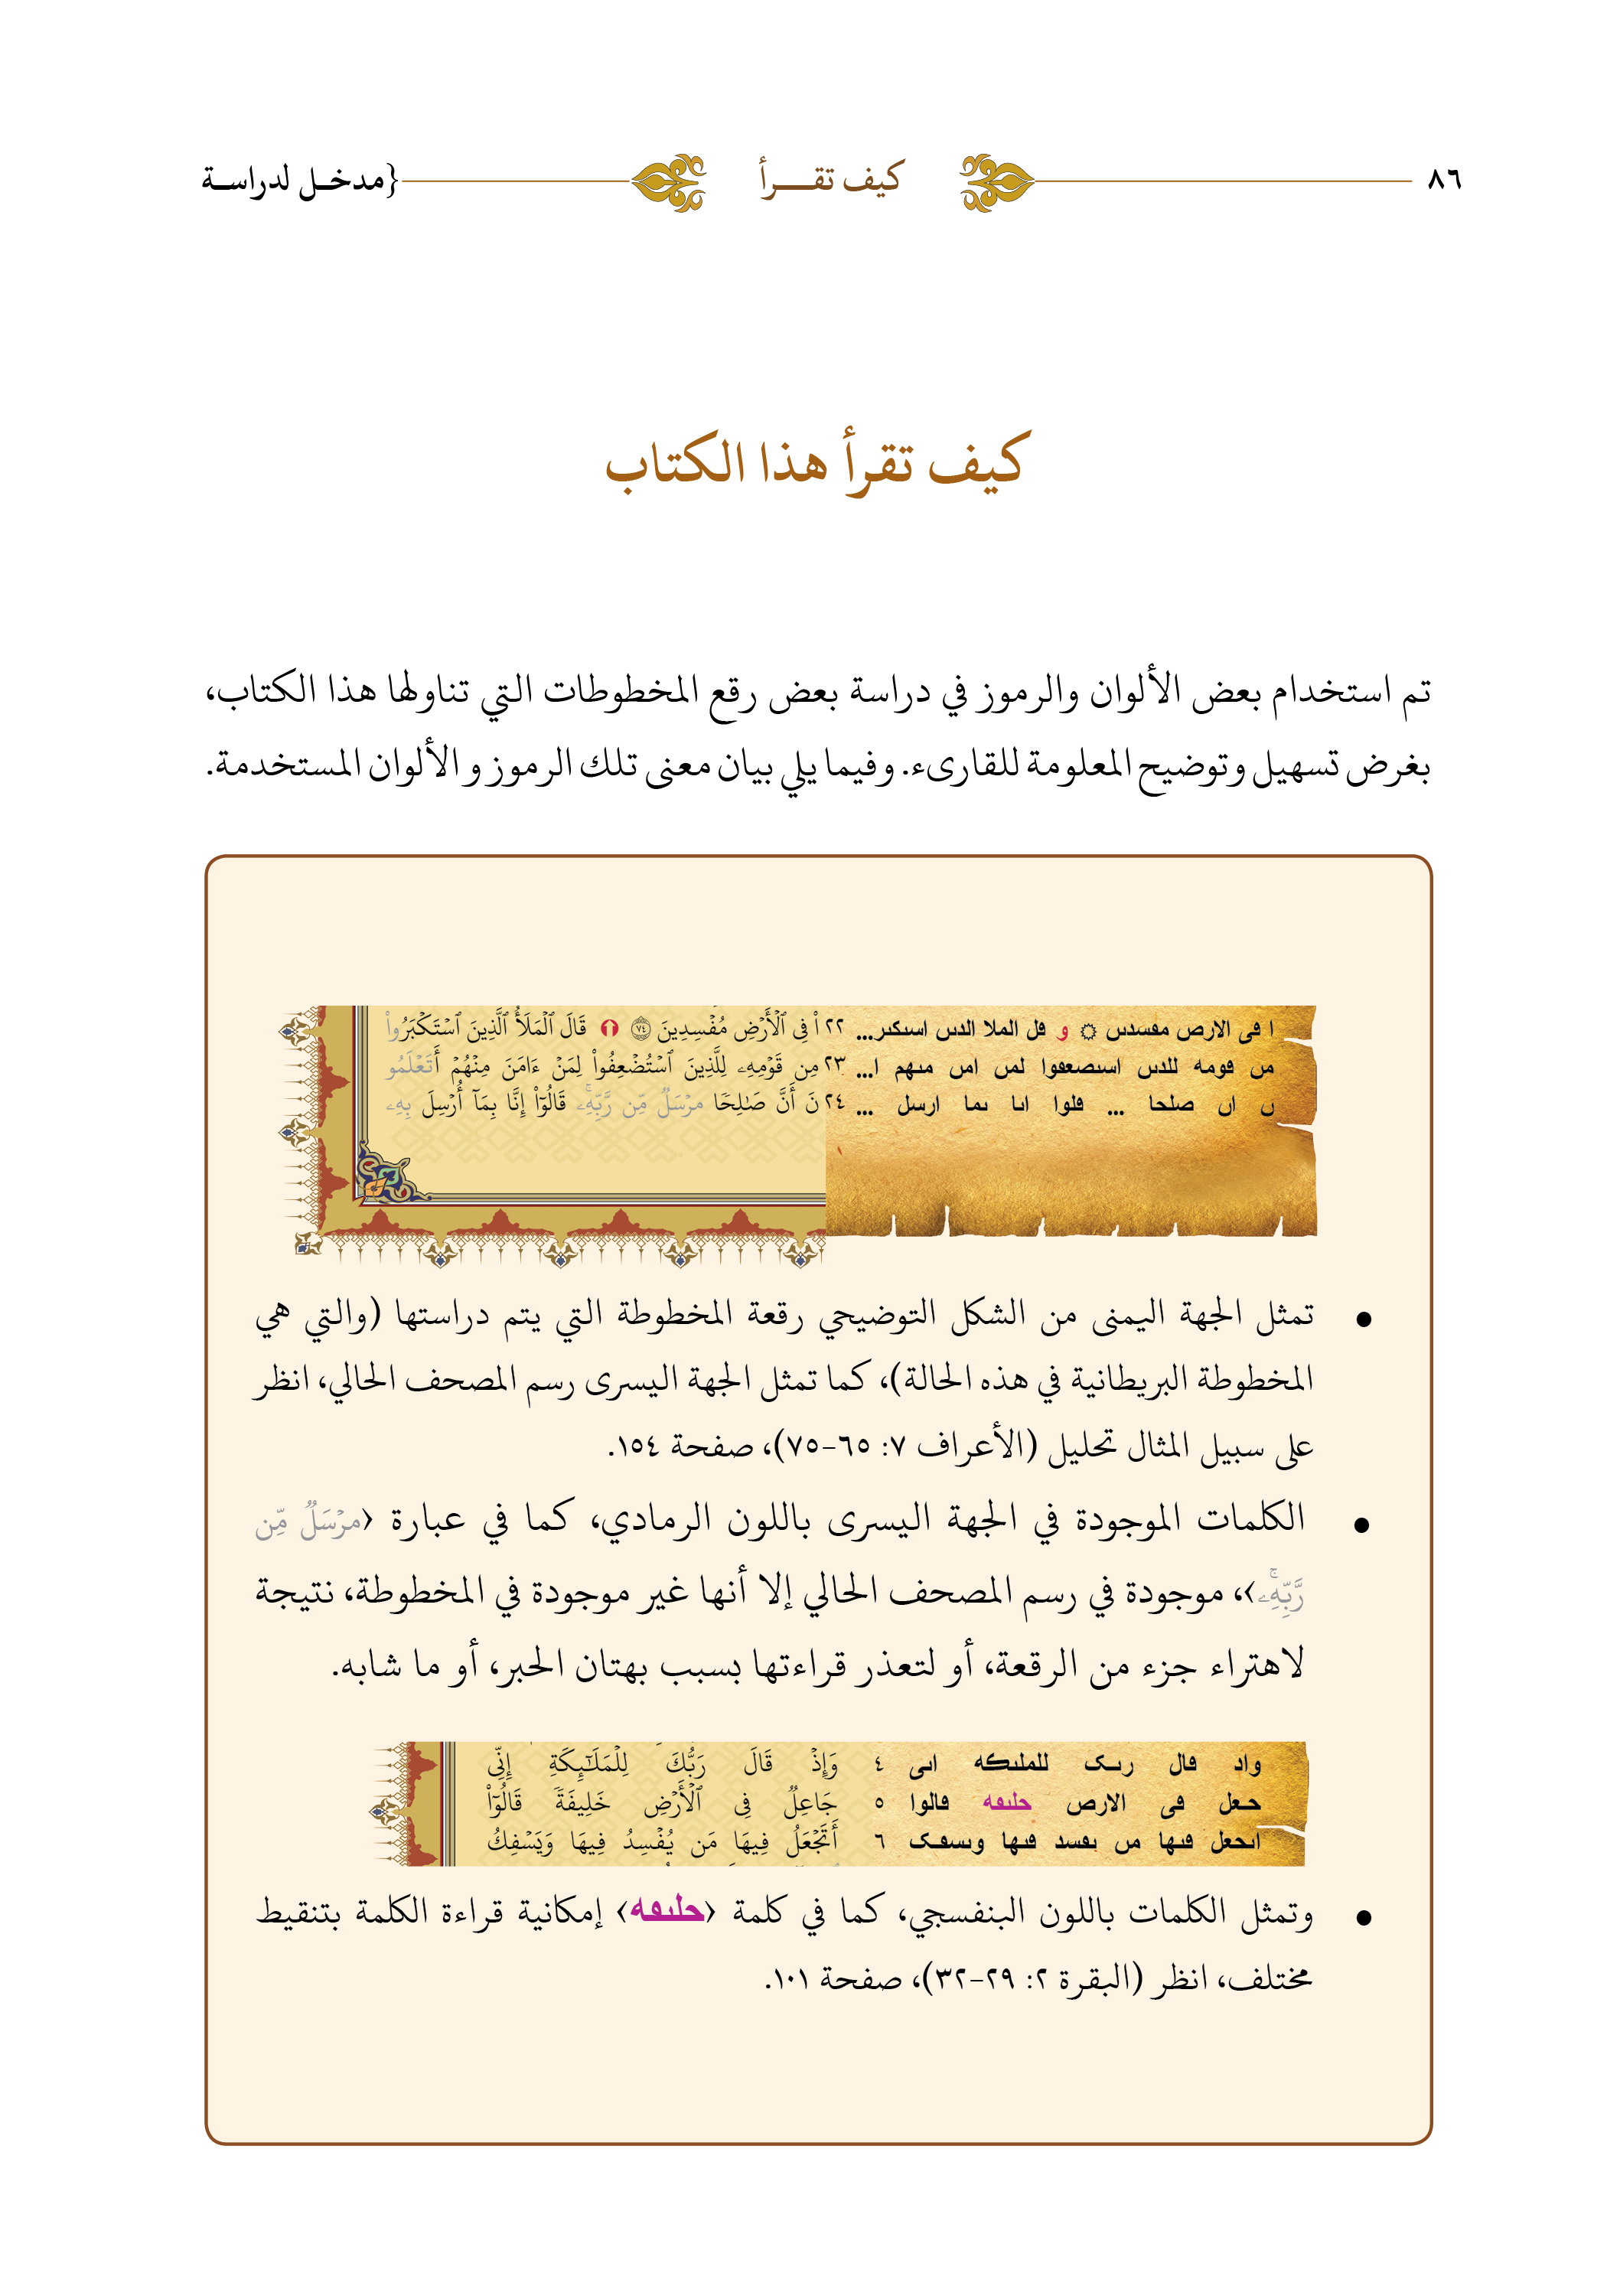 ٨٦ كيف تقـــرأ {مدخـل لدراسـة
كيف تقرأ هذا الكتاب
تم استخدام بعض الألوان والرموز في دراسة بعض رقع المخطوطات التي تناولها هذا الكتاب،
بغرض تسهيل وتوضيح المعلومة للقارىء. وفيما يلي بيان معنى تلك الرموز و الألوان المستخدمة.
ا فى الارص مفسدٮں ۞ و فل الملا الدٮں اسٮكٮر... ٢٢ اْ فِى ٱلْأَرْضِ مُفْسِدِينَ ٧٤ ١ قَالَ ٱلْمَلَأُ ٱلَّذِينَ ٱسْتَكْبَرُواْ
مں فومه للدٮں اسٮصعفوا لمں امں مٮهم ا... ٢٣ مِن قَوْمِهِۦ لِلَّذِينَ ٱسْتُضْعِفُواْ لِمَنْ ءَامَنَ مِنْهُمْ أَتَعْلَمُو
ں اں صلحا ... فلوا اٮا ٮما ارسل ... ٢٤ نَ أَنَّ صَٰلِحًا مرْسَلٌ مِّن رَّبِّهِۦۚ قَالُوٓاْ إِنَّا بِمَآ أُرْسِلَ بِهِۦ
• تمثل الجهة اليمنى من الشكل التوضيحي رقعة المخطوطة التي يتم دراستها (والتي هي
المخطوطة البريطانية في هذه الحالة)، كما تمثل الجهة اليسرى رسم المصحف الحالي، انظر
على سبيل المثال تحليل (الأعراف ٧: ٦٥-٧٥)، صفحة ١٥٤.
• الكلمات الموجودة في الجهة اليسرى باللون الرمادي، كما في عبارة ‹مرْسَلٌ مِّن
رَّبِّهِۦۚ›، موجودة في رسم المصحف الحالي إلا أنها غير موجودة في المخطوطة، نتيجة
لاهتراء جزء من الرقعة، أو لتعذر قراءتها بسبب بهتان الحبر، أو ما شابه.
واد فال رٮک للملٮكه اٮى ٤ وَإِذْ قَالَ رَبُّكَ لِلْمَلَٰٓئِكَةِ إِنِّى
حعل فى الارص حلٮفه فالوا ٥ جَاعِلٌ فِى ٱلْأَرْضِ خَلِيفَةً قَالُوٓاْ
اٮحعل فٮها مں ٮفسد فٮها وٮسفک ٦ أَتَجْعَلُ فِيهَا مَن يُفْسِدُ فِيهَا وَيَسْفِكُ
• وتمثل الكلمات باللون البنفسجي، كما في كلمة ‹حلٮفه› إمكانية قراءة الكلمة بتنقيط
مختلف، انظر (البقرة ٢: ٢٩-٣٢)، صفحة ١٠١.